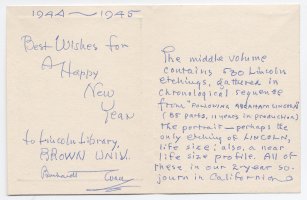 1944 ~ 1945
Best Wishes for
A
Happy
New
Year
to Lincoln Library,
BROWN UNIV.
Bernhardt Wall
The middle volume
contains 530 Lincoln
etchings, gathered in
chronological sequence
from "FOLLOWING ABRAHAM LINCOLN"
(85 parts, 11 years in production)
The portrait — perhaps the
only etching of LINCOLN,
life size; also, a near
life size profile. All of
these in our 2-year so-
journ in California